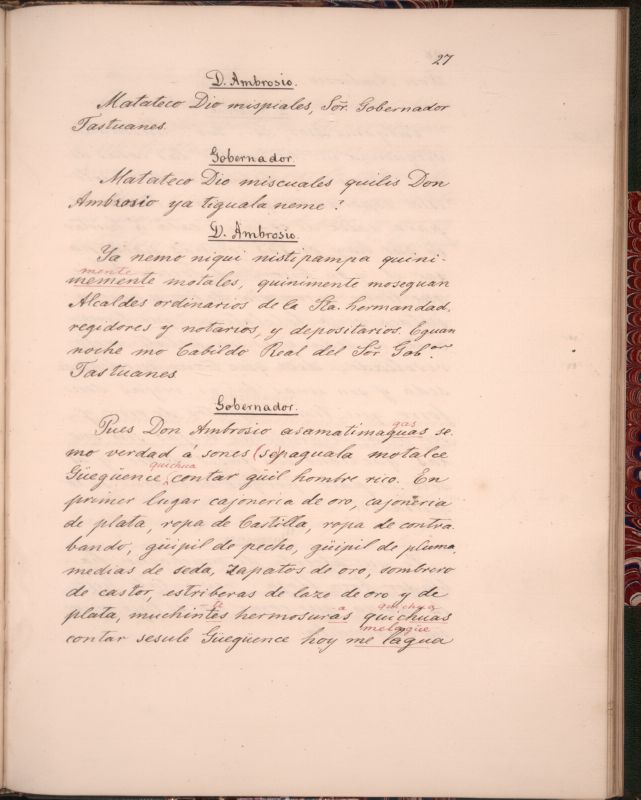 27
D. Ambrosio.
Matateco Dio mispiales, Sor. Gobernador
Tastuanes.
Gobernador.
Matateco Dio miscuales quilis Don
Ambrosio ya tiguala neme?
D. Ambrosio.
Ya nemo niqui nistipampa quini-
mente
memente motales, quinimente moseguan
Alcaldes ordinarios de la Sta. hermandad,
regidores y notarios, y depositarios. Eguan
noche mo Cabildo Real del Sor. Gobor.
Tastuanes
Gobernador.
gas
Pues Don Ambrosio asamatimaguas se.
mo verdad á sones (se)paguala motalce
quichua
Güegüence contar güil hombre rico. En
primer lugar cajoneria de oro, cajoneria
de plata, ropa de Castilla, ropa de contra
bando, güipil de pecho, güipil de pluma,
medias de seda, zapatos de oro, sombrero
de castor, estriberas de lazo de oro y de
te a quichua
plata, muchintes hermosuras quichuas
melagüe
contar sesule Güegüence hoy me lagua